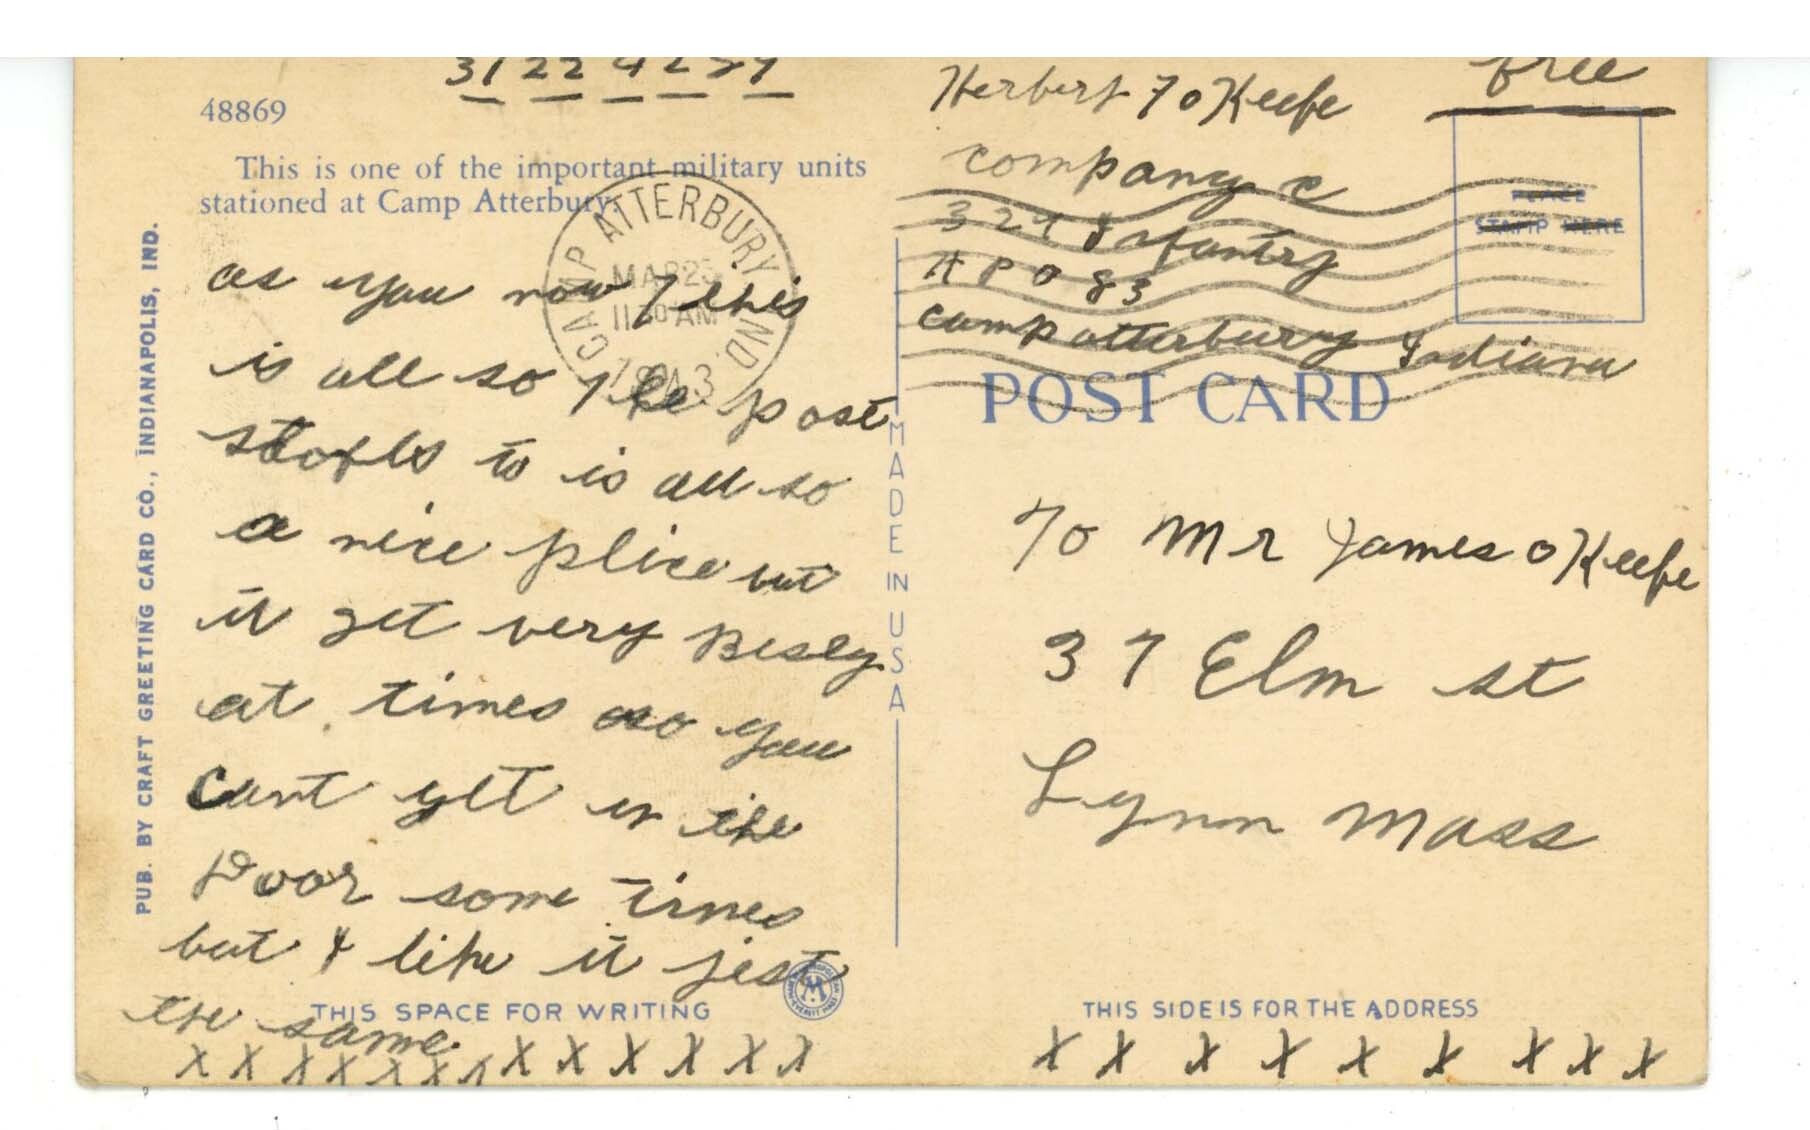 31224259
48869
This is one of the important military units
stationed at Camp Atterbury.
CAMP ATTERBURY, IND.
MAR 25
11 30 AM
1943
as you now this
is all so the post
to is all so
a nice plice but
it get very Besly
at times so you
cant get in the
Door some times
but I like it jest
the same
THIS SPACE FOR WRITING
X X X X X X X X X X X X X
PUB. BY CRAFT GREETING CARD CO., INDIANAPOLIS, IND.
MADE IN USA
Herbert F O Keefe
free
company c
329 Infantry
A P O 83
camp atterbury Indiana
PLACE
STAMP HERE
POST CARD
To Mr James O Keefe
37 Elm st
Lynn Mass
THIS SIDE IS FOR THE ADDRESS
X X X X X X X X X